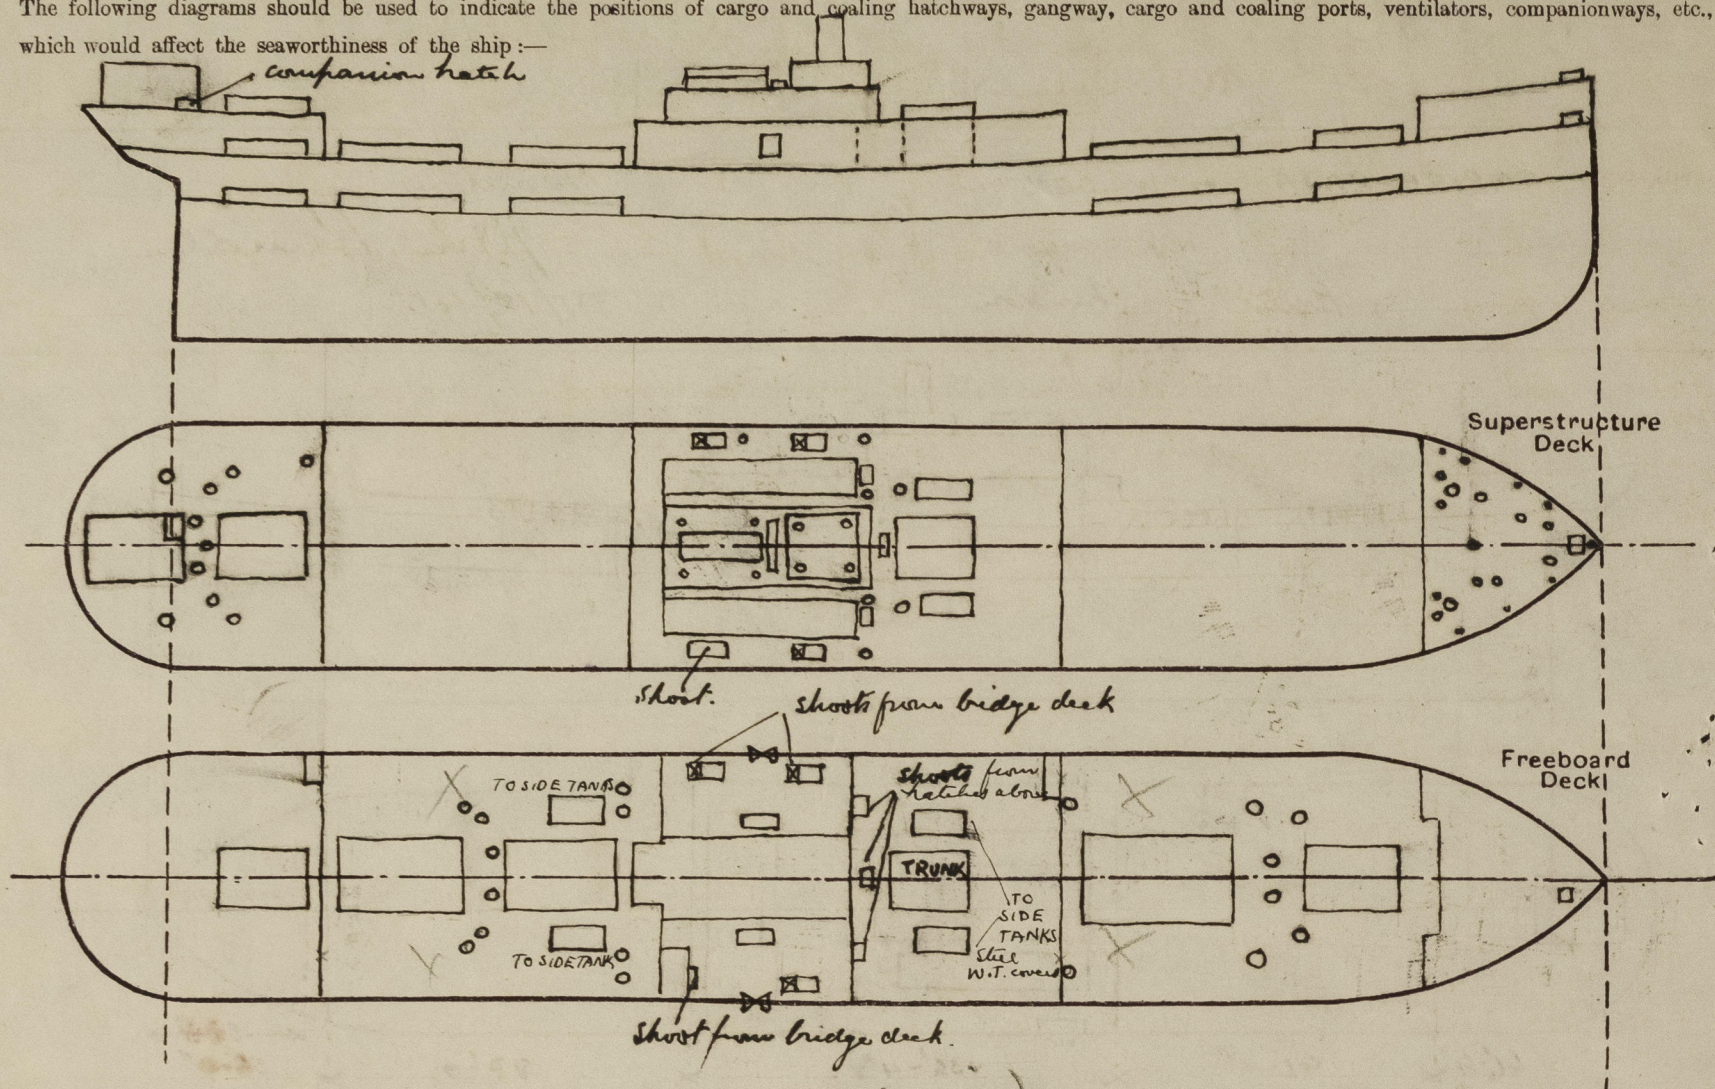 The following diagrams should be used to indicate the positions of cargo and coaling hatchways, gangway, cargo and coaling ports, ventilators, companionways, etc.,
which would affect the seaworthiness of the ship :—
companion hatch
Superstructure
Deck
shoot.
shoots from bridge deck
Freeboard
Deck
TO SIDE TANKS
shoots from
hatches above
TRUNK
TO
SIDE
TANKS
Steel
W.T. covers
TO SIDE TANK
shoot from bridge deck.